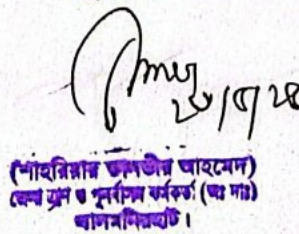 ২০/৫/২৫
(শাহরিয়ার তানভীর আহমেদ)
জেলা ত্রাণ ও পুনর্বাসন কর্মকর্তা (অঃ দাঃ)
লালমনিরহাট।